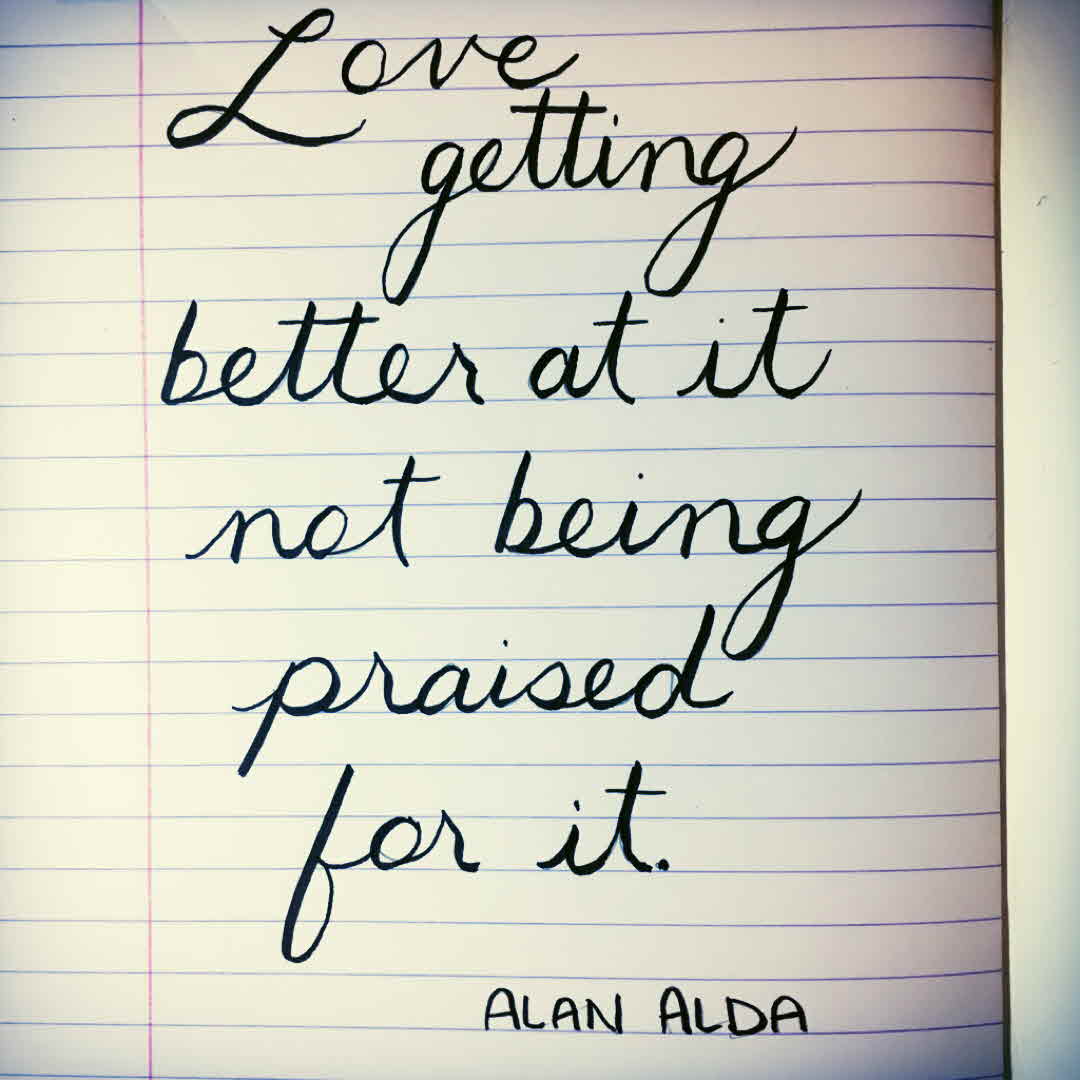 Love
getting
better at it
not being
praised
for it.
ALAN ALDA